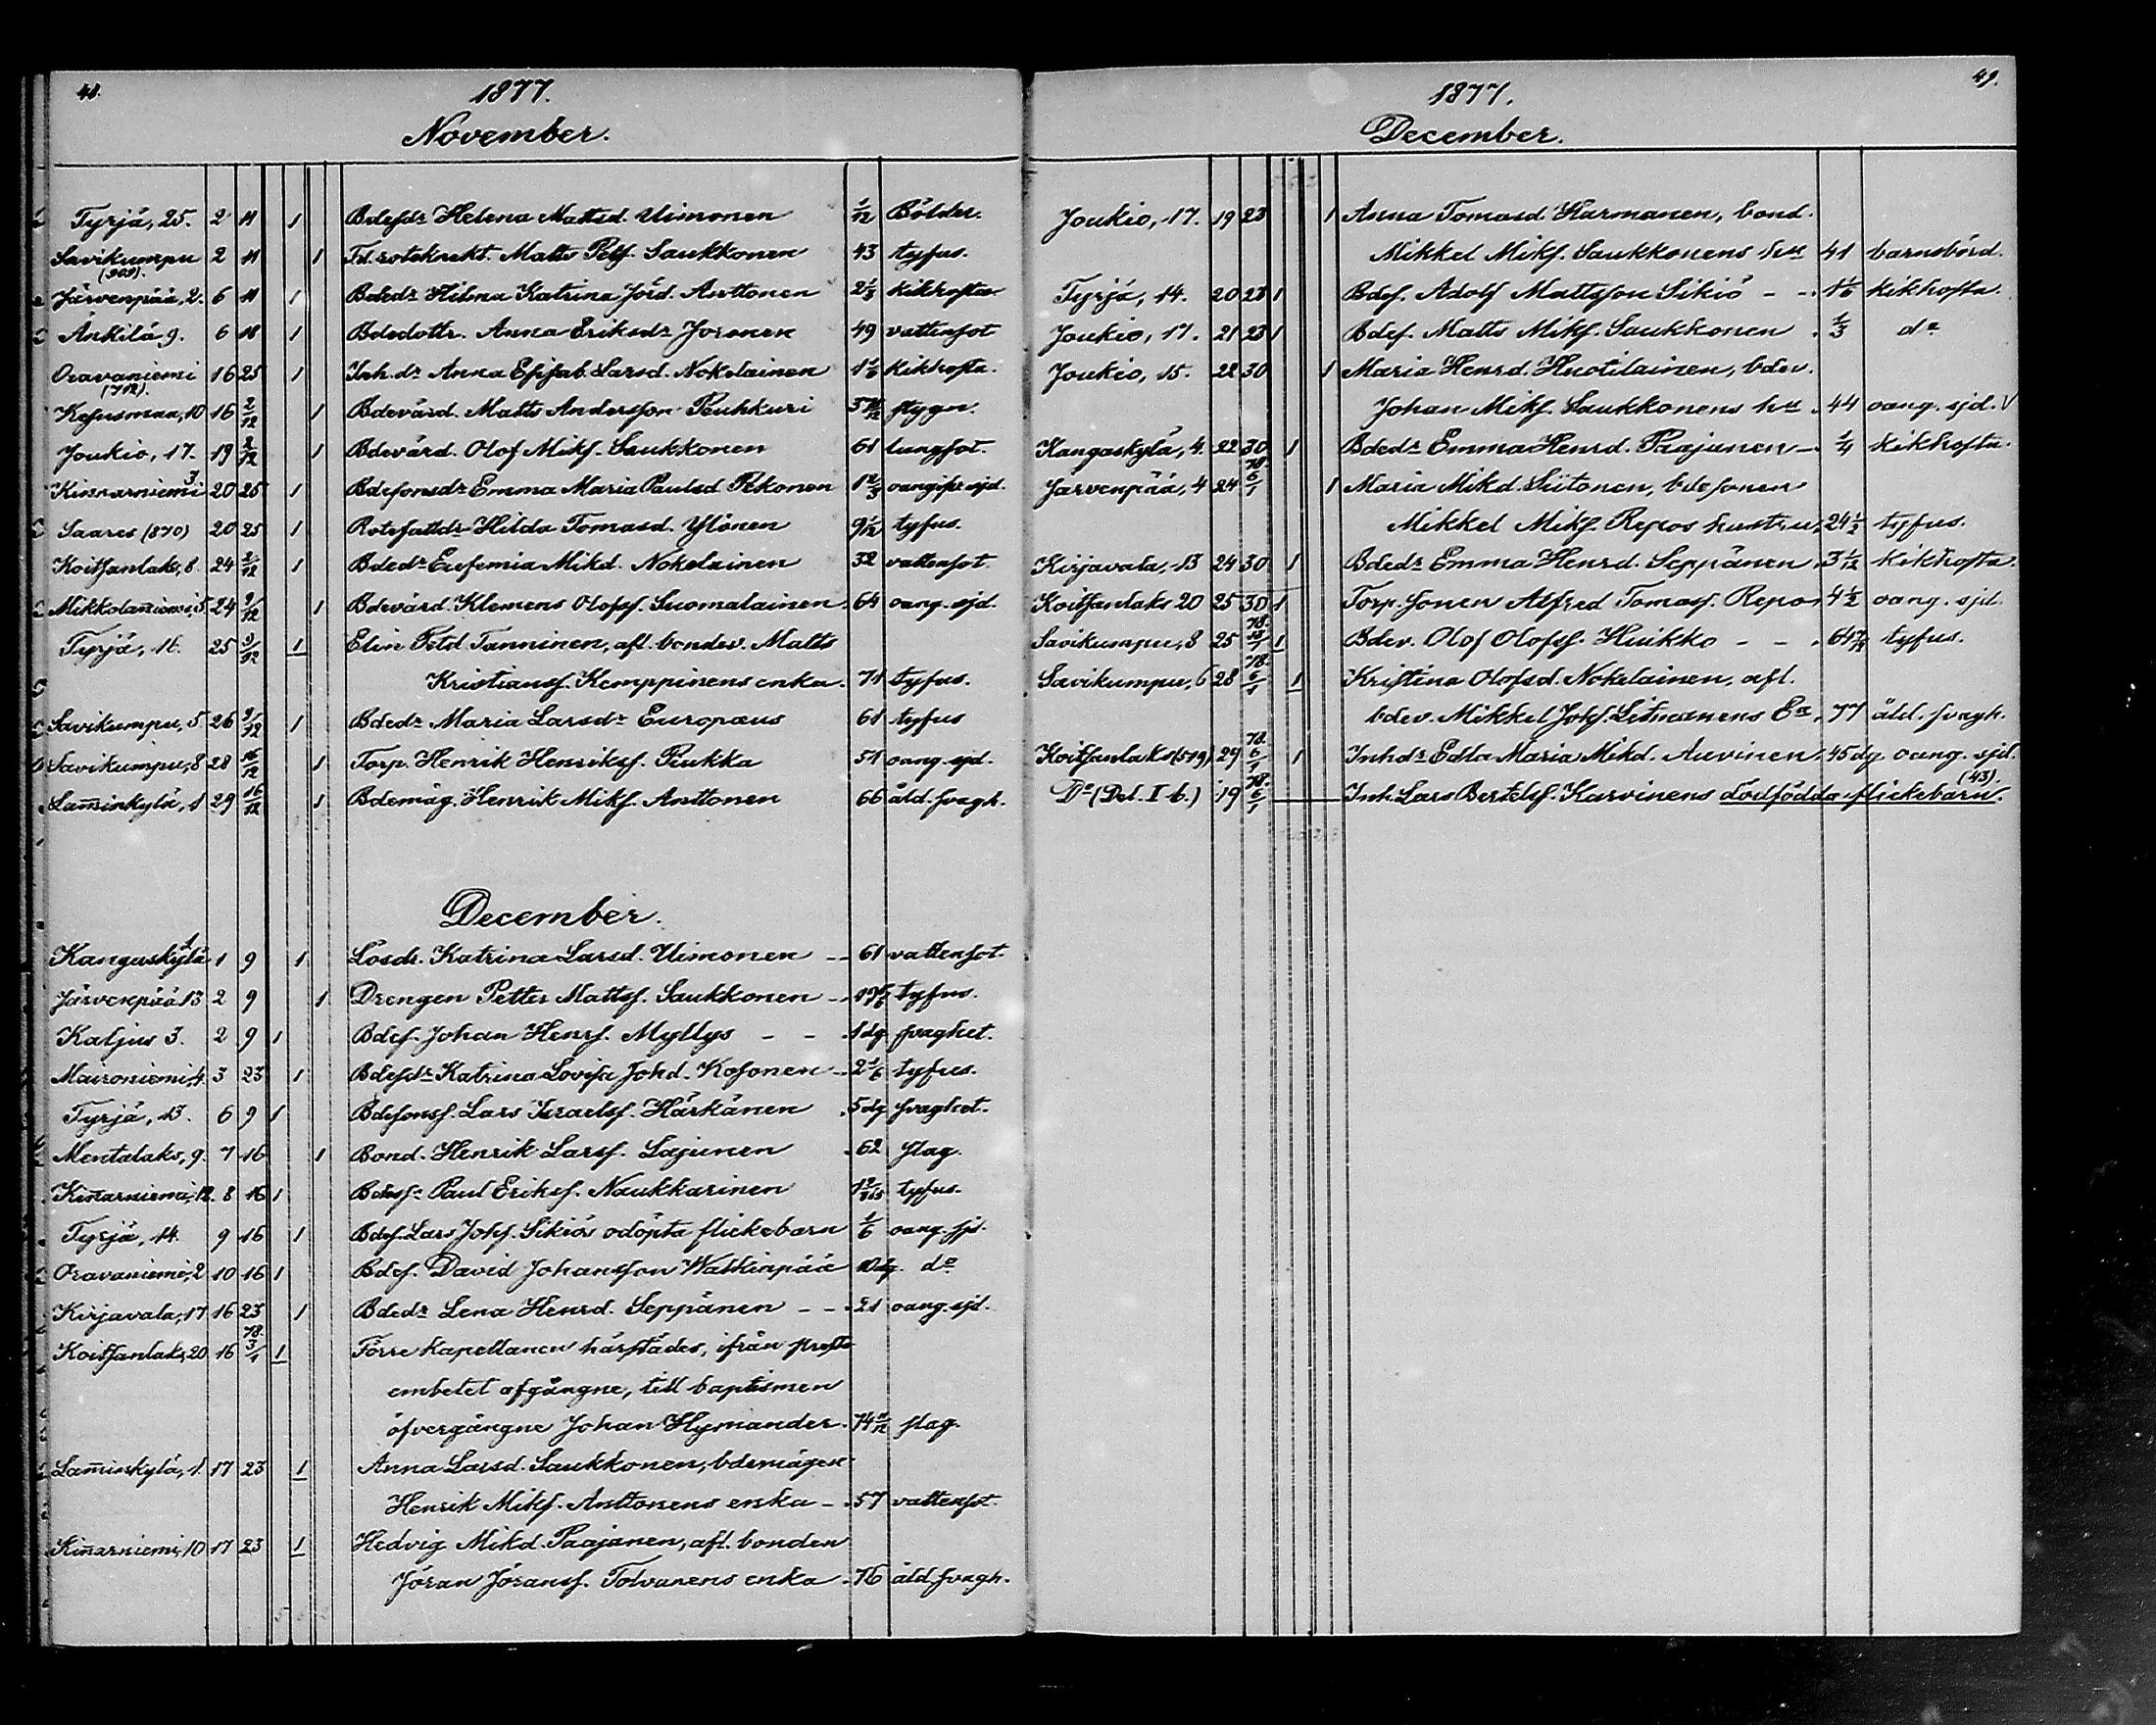 48.
1877.
November.
Tyrjä, 25. 2 11 1 Bdesdr Helena Mattsd. Uimonen 1/12 Bölder.
Savikumpu (909). 2 11 1 Fd. roteknekt. Matts Petf. Saukkonen 43 tyfus.
Järvenpää, 2. 6 11 1 Bdedr Hilma Katrina Jörd. Anttonen 2 1/3 kikhosta
Änkilä, 9. 6 18 1 Bdedottr. Anna Eriksdr Joronen 49 vattensot
Oravaniemi (712). 16 25 1 Inh. dr Anna Lisab. Larsd. Nokelainen 1 1/6 kikhosta.
Kesusmaa, 10 16 2/12 1 Bdevärd. Matts Andersson Peuhkuri stygn.
Joukio, 17. 19 2/12 1 Bdevärd. Olof Mikf. Saukkonen 61 lungsot.
Kinnarniemi 3 20 25 1 Bdesonsdr Emma Maria Paulsd Pekonen 1 2/3 oangifv. sjd.
Saares (870) 20 25 1 Rotefattdr Hilda Tomasd. Ylönen 9 1/12 tyfus.
Koitsanlaks, 8. 24 2/12 1 Bdedr Eufemia Mikd. Nokelainen 32 vattensot.
Mikkolanniemi, 5. 24 9/12 1 Bdevärd. Klemens Olofsf. Suomalainen 64 oang. sjd.
Tyrjä, 16. 25 9/12 1 Elin Petd Tanninen, afl. bondev. Matts
Kristiansf. Kemppinens enka. 71 tyfus.
Savikumpu, 5. 26 9/12 1 Bdedr Maria Larsdr Europæus 61 tyfus
Savikumpu, 8 28 16/12 1 Torp. Henrik Henriksf. Piukka 51 oang. sjd.
Lam̅inkylä, 1 29 16/12 1 Bdemåg. Henrik Mikf. Anttonen 66 åld. svagh.
December.
Kangaskylä 1 1 9 1 Lösdr. Katrina Larsd. Uimonen -- 61 vattensot.
Järvenpää 13 2 9 1 Drengen Petter Mattsf. Saukkonen - 17 tyfus.
Katjus 3. 2 9 1 Bdef. Johan Henrf. Myllys - - 1 dg svaghet.
Maironiemi, 4. 3 23 1 Bdesdr Katrina Lovisa Johd. Kosonen - 2 1/6 tyfus.
Tyrjä, 13. 6 9 1 Bdesonsf. Lars Israelsf. Härkänen 5 dg svaghet.
Mentalaks, 9. 7 16 1 Bond. Henrik Larsf. Lajunen 62 slag.
Kin̅arniemi, 12. 8 16 1 Paul Eriksf. Naukkarinen tyfus.
Tyrjä, 14. 9 16 1 Bdef. Lars Johf. Sikiös odöpta flickebarn 1/6 oang. sjd.
Oravaniemi, 2 10 16 1 Bdef. David Johansson Watkinpää 10 dg. do
Kirjavala, 17 16 23 1 Bdedr Lena Henrd. Seppänen - - 21 oang. sjd.
Koitsanlaks, 20 16 78. 3/1 1 Förre kapellanen härstädes, ifrån prest-
embetet afgångne, till baptismen
öfvergångne Johan Hymander. 74 11/12 slag.
Lam̅inkylä, 1. 17 23 1 Anna Larsd. Saukkonen, bdemågen
Henrik Mikf. Anttonens enka - 57 vattensot.
Kin̅arniemi, 10 17 23 1 Hedvig Mikd. Paajanen, afl. bonden
Jöran Jöransf. Tolvanens enka 76 åld. svagh.
49.
1877.
December.
Joukio, 17. 19 23 1 Anna Tomasd. Karmanen, bond.
Mikkel Mikf. Saukkonens hu 41 barnsbörd.
Tyrjä, 14. 20 23 1 Bdef. Adolf Mattsson Sikiö - - 1 1/6 kikhosta.
Joukio, 17. 21 23 1 Bdef. Matts Mikf. Saukkonen 1/3 do
Joukio, 15. 22 30 1 Maria Henrd. Huotilainen, bdev.
Johan Mikf. Saukkonens hu 44 oang. sjd. V
Kangaskylä, 4. 22 30 1 Bdedr Emma Henrd. Paajanen - 1/4 kikhosta.
Järvenpää, 4 24 78. 6/1 1 Maria Mikd. Siitonen, bdesonen
Mikkel Mikf. Repos hustru, 24 1/2 tyfus.
Kirjavala, 13 24 30 1 Bdedr Emma Henrd. Seppänen 3 1/12 kikhosta.
Koitsanlaks 20 25 30 1 Torp. sonen Alfred Tomasf. Repo 4 1/2 oang. sjd.
Savikumpu, 8 25 78. 13/1 1 Bdev. Olof Olofsf. Huikko - - 64 tyfus.
Savikumpu, 6 28 78. 6/1 1 Kristina Olofsd. Nokelainen, afl.
bdev. Mikkel Johf. Litmanens Ea, 77 åld. svagh.
Koitsanlaks (519) 29 78. 6/1 1 Inhdr Edla Maria Mikd. Auvinen. 45 dg. oang. sjd.
Do (Del. I b.) 19 78. 6/1 Inh. Lars Bertelsf. Karvinens dödfödda flickebarn. (43).